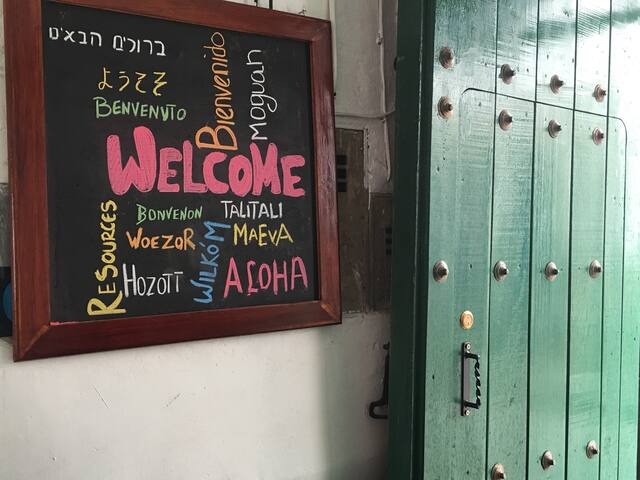 ברוכים הבאים
ようこそ
BENVENUTO
Bienvenido
Moguah
WELCOME
RESOURCES
BONVENON
TALITALI
WOEZOR
WILKÓM
MAEVA
HOZOTT
ALOHA